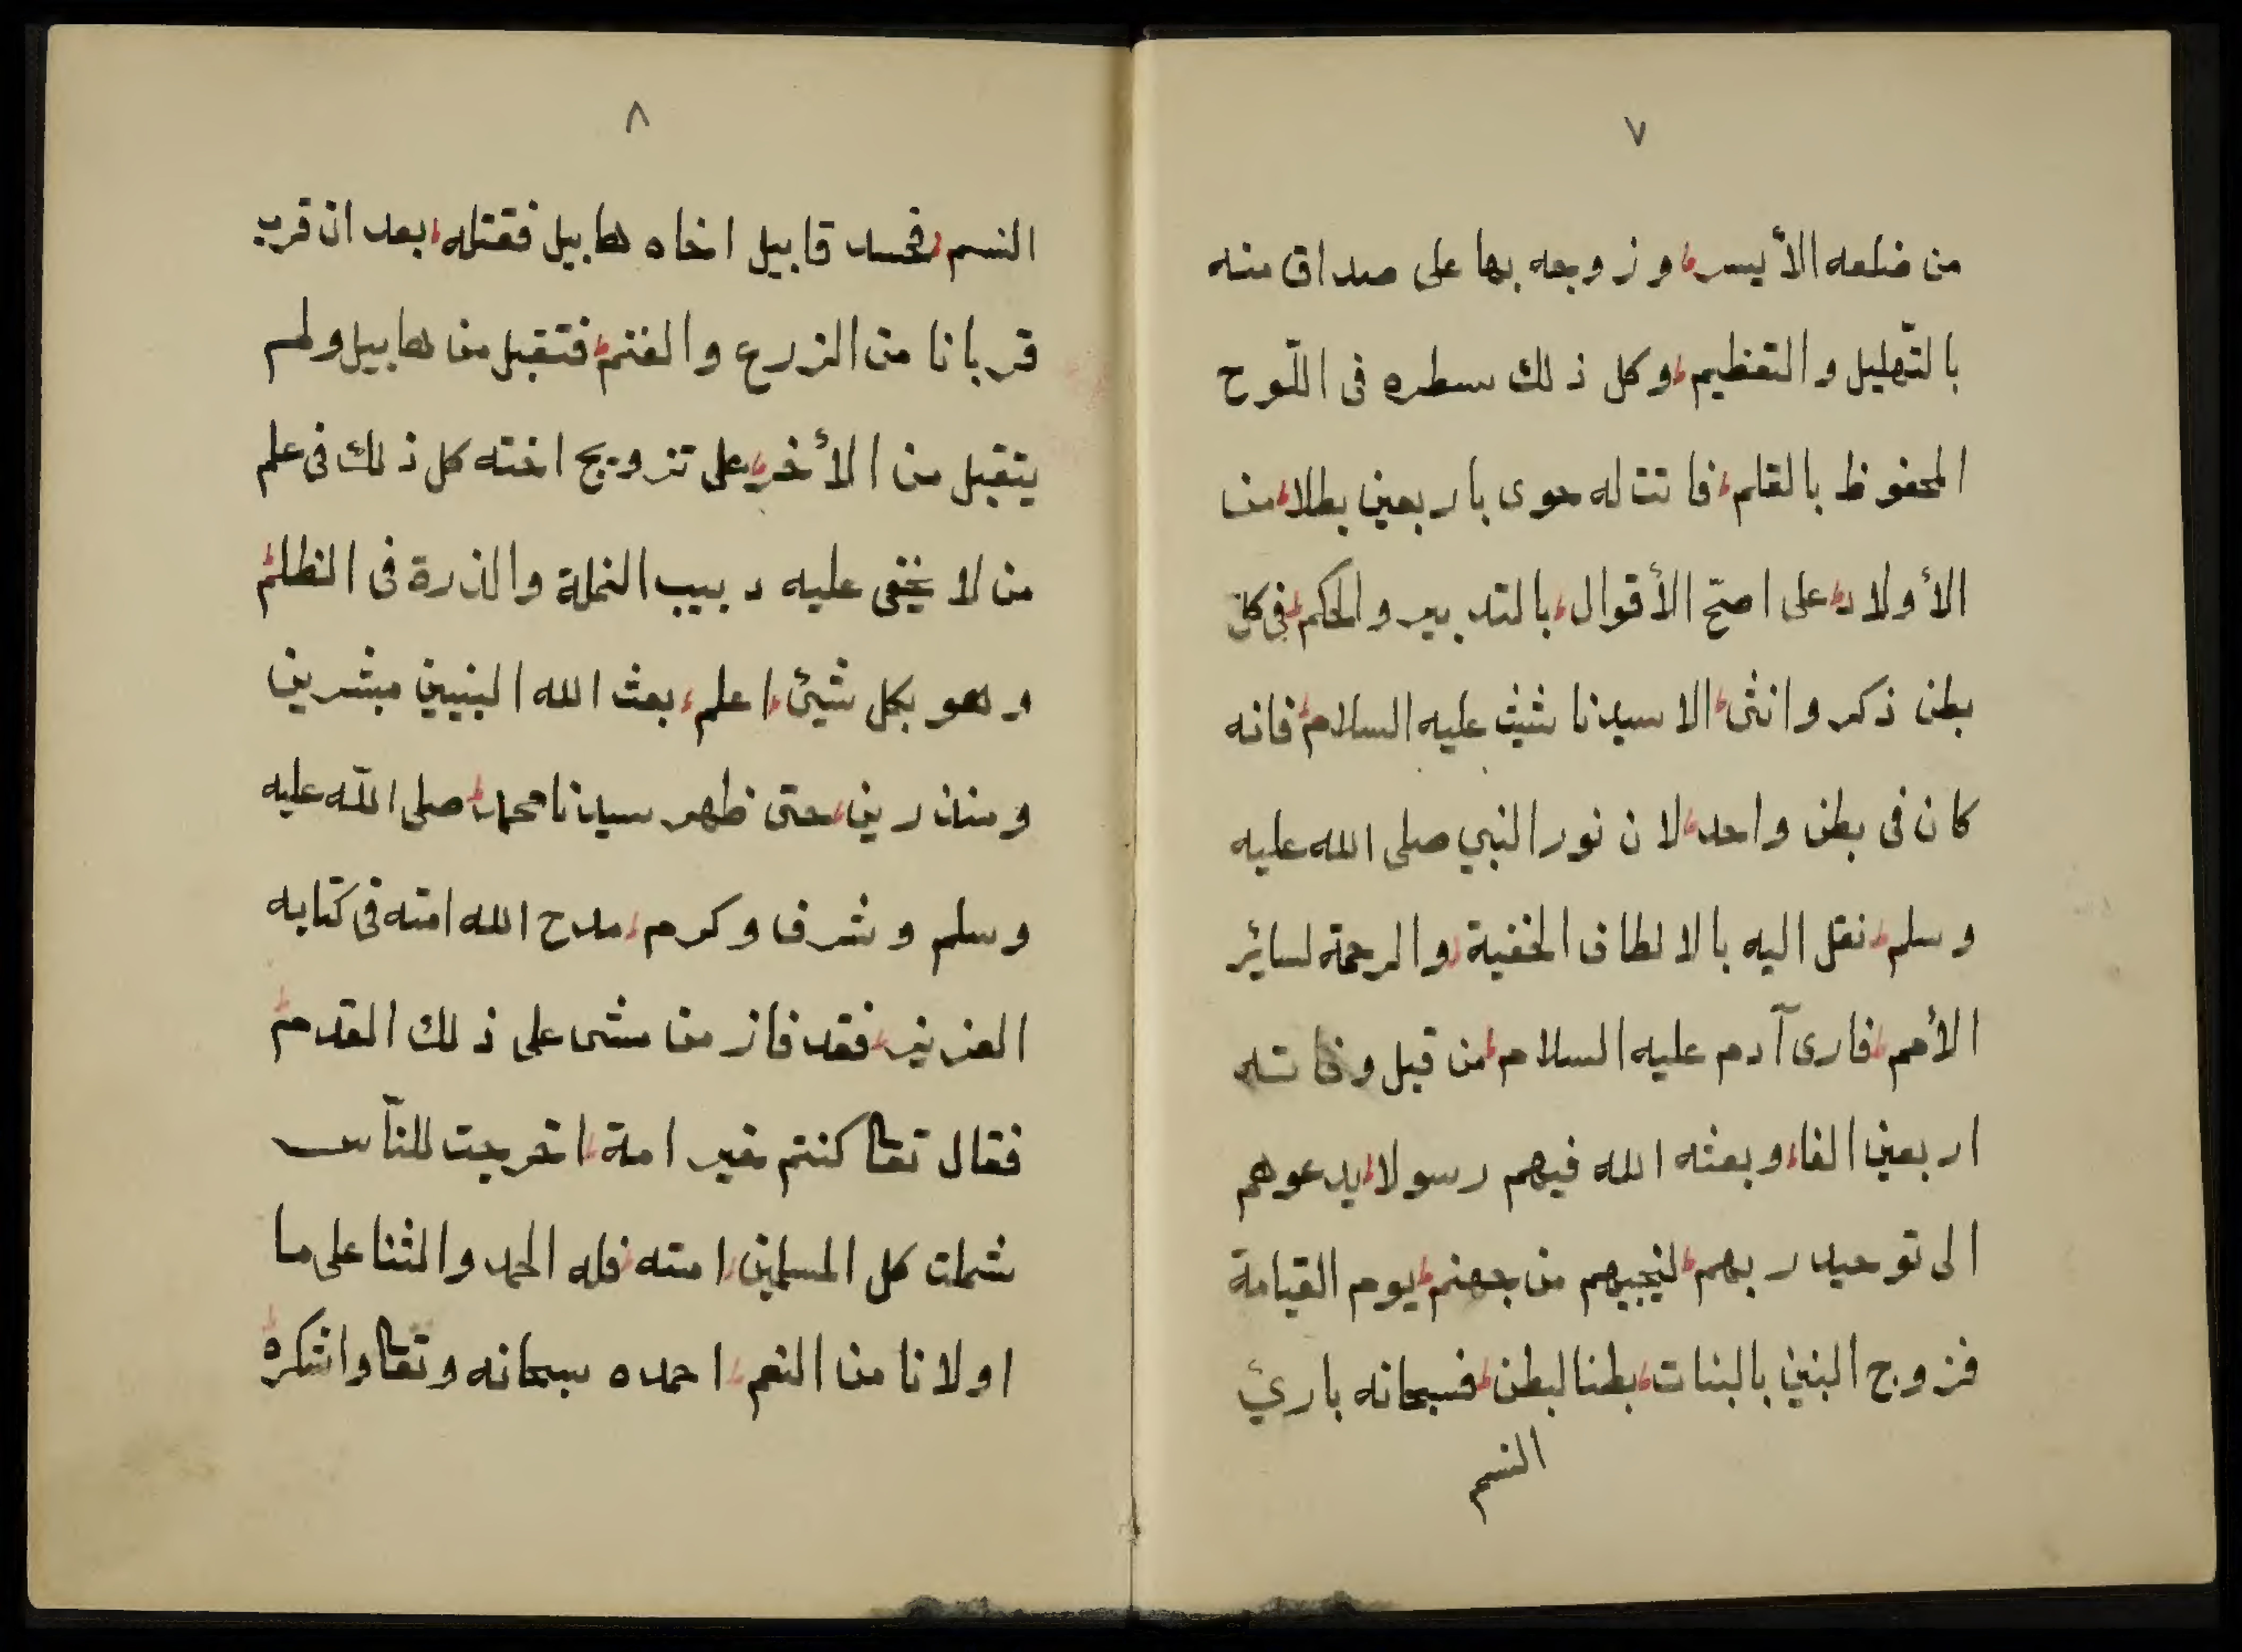 ٧
من ضلعه الأيسر، وزوجه بها على صداق منه
بالتّهليل والتعظيم، وكل ذلك سطره فى اللّوح
المحفوظ بالقلم، فاتت له حوى باربعين بطلا، من
الأولاد، على اصحّ الأقوال، بالتدبير والحكم، فى كل
بطن ذكر وانثى، الا سيدنا شيث عليه السلام، فانه
كان فى بطن واحد، لان نور النبي صلى الله عليه
وسلم، نقل اليه بالالطاف الخفية، والرحمة لسائر
الأمم، فارى آدم عليه السلام، من قبل وفاته
اربعين الفا، وبعثه الله فيهم رسولا، يدعوهم
الى توحيد ربهم، لينجيهم من جهنم، يوم القيامة
فزوج البنين بالبنات، بطنا لبطن، فسبحانه بارئ
النسم
٨
النسم، فحسد قابيل اخاه هابيل فقتله، بعد ان قرب
قربانا من الزرع والغنم، فتقبل من هابيل ولم
يتقبل من الأخر، على تزويج اخته كل ذلك فى علم
من لا يخفى عليه دبيب النملة والذرة فى الظلم،
وهو بكل شيئ، اعلم، بعث الله النبيين مبشرين
ومنذرين، حتى ظهر سيدنا محمد، صلى اللّه عليه
وسلم وشرف وكرم، مدح الله امته فى كتابه
العزيز، فقد فاز من مشى على ذلك القدم،
فقال تعا كنتم خير امة، اخرجت للنّاس
شملت كل المسلمين، امته، فله الحمد والثنا على ما
اولانا من النعم، احمده سبحانه وتعا واشكره،